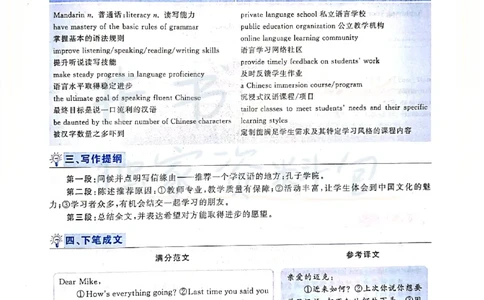 Mandarin n. 普通话;literacy n. 读写能力
have mastery of the basic rules of grammar
掌握基本的语法规则
improve listening/speaking/reading/writing skills
提升听说读写技能
make steady progress in language proficiency
语言水平取得稳定进步
the ultimate goal of speaking fluent Chinese
最终目标是说一口流利的汉语
be daunted by the sheer number of Chinese characters
被汉字数量之多吓到
private language school 私立语言学校
public education organization 公立教学机构
online language learning community
语言学习网络社区
provide timely feedback on students' work
及时反馈学生作业
a Chinese immersion course/program
沉浸式汉语课程/项目
tailor classes to meet students' needs and their specific
learning styles
定制能满足学生需求及其特定学习风格的课程内容
三、写作提纲
第一段:问候并点明写信缘由——推荐一个学汉语的地方:孔子学院。
第二段:陈述推荐原因:①教师专业,教学质量有保障;②活动丰富,让学生体会到中国文化的魅
力;③学习者众多,有机会结交一起学习的朋友。
第三段:总结全文,并表达希望对方能取得进步的愿望。
四、下笔成文
满分范文
Dear Mike,
①How's everything going? ②Last time you said you
参考译文
亲爱的迈克:
①近来如何?②上次你说你想要